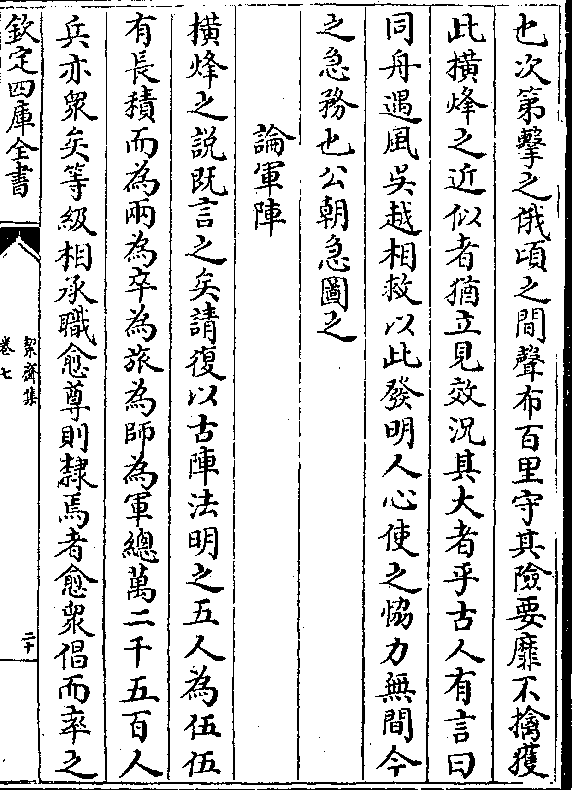 也次第擊之俄頃之間聲布百里守其險要靡不擒獲
此橫烽之近似者猶立見效況其大者乎古人有言曰
同舟遇風吳越相救以此發明人心使之恊力無間今
之急務也公朝急圖之
論軍陣
橫烽之說既言之矣請復以古陣法明之五人為伍伍
有長積而為兩為卒為旅為師為軍總萬二千五百人
兵亦衆矣等級相承職愈尊則隸焉者愈衆倡而率之
欽定四庫全書
絜齋集
卷七
二十